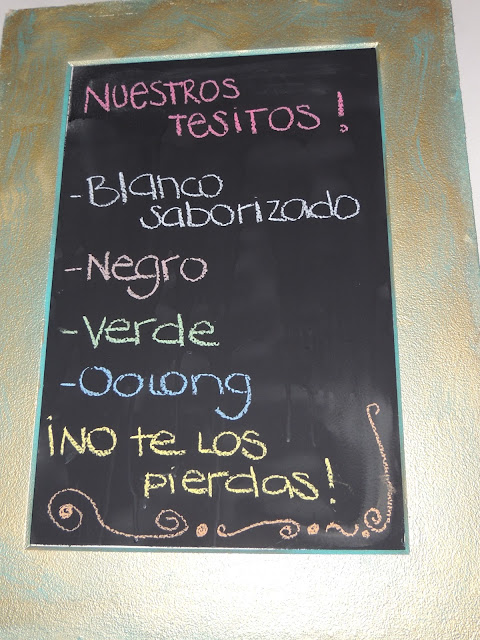 NUESTROS
TESITOS!
-Blanco
saborizado
-Negro
-Verde
-Oolong
¡NO te LOS
pierdas!